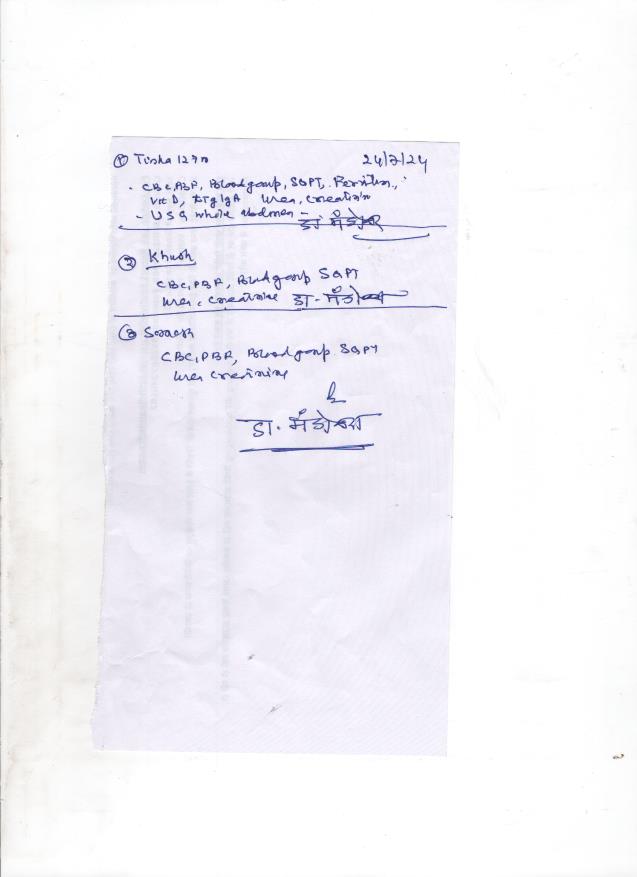 ① Tisha 12yr 24/7/24
- CBC, PBF, Blood group, SGPT, Ferritin,
Vit D, tTg IgA Urea, creatinin
- USG whole abdomen -
② Khush
CBC, PBF, Blood group SGPT
Urea, creatinine डा.
③
CBC, PBF, Blood group SGPT
Urea creatinine
डा.